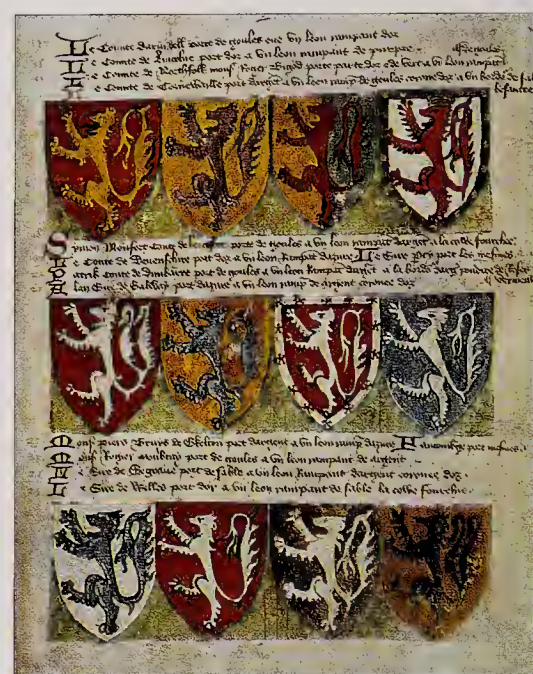 Le Counte darundell porte de goules ove un leon rampant dor
Le Comte de Lincolne port dor a un leon rampant de purpure
Le Comte de Northfolk mons Roger Bigod porte parte dor e de vert a un leon rampant de goules
Le Comte de Cornewaille port dargent a un leon ramp de goules corone dor a un bordr de sable besante
Symon Monfort Comte de porte de goules a un leon rampant dargent a la coue fourchee
Le Comte de Devenshire port dor a un leon Rumpat dazure Le Sire Percy port les mesmes
Patrik Comte de Dunbarre port de goules a un leon Rumpat dargent a la bordr darg poudre de
Alan Sire de Galway port dazure a un leon ramp de argent corone dor
Mons Piers Bruys de Skelton port dargent a un leon ramp dazure Fauconberge port mesmes
Mons Roger Moubray port de goules a un leon rampant de argent
Le Sire de Segrave port de sable a un leon Rampant dargent corone dor
Le Sire de Welles port dor a un leon rampant de sable la couee fourchee